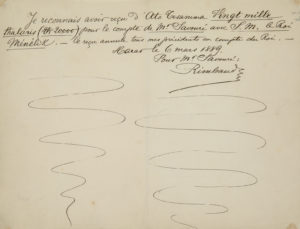 Je reconnais avoir reçu d'Ato Tesamma Vingt mille
thalaris (th 20000) pour le compte de Mr Savouré avec S. M. le Roi
Ménélik. — Ce reçu annule tous mes précédents en compte du Roi. —
Harar le 6 mars 1889
Pour Mr Savouré:
Rimbaud